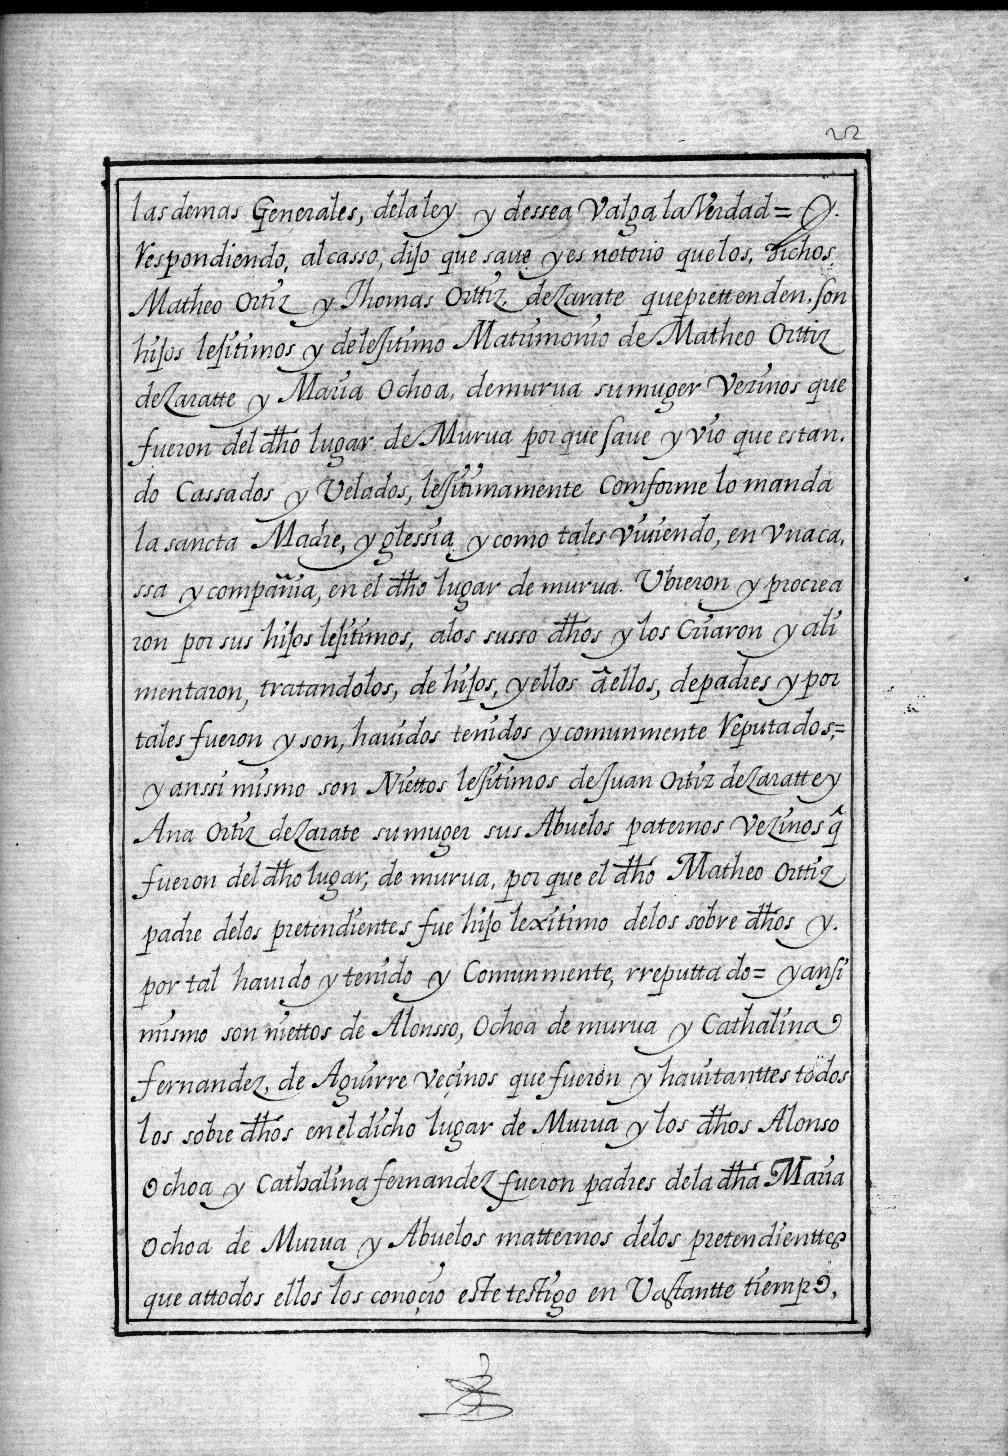 las demas Generales, dela ley y dessea Valga la Verdad= Y.
Respondiendo, al casso, dijo que saue y es notorio que los, dichos
Matheo Ortiz y Thomas Orttiz, de Zarate que prettenden, son
hijos lejitimos y de lejitimo Matrimonio de Matheo Orttiz
de Zaratte y Maria Ochoa, de murua su muger Vezinos que
fueron del dho lugar de Murua por que saue y vio que estan.
do Cassados y Velados, lejitimamente Comforme lo manda
la sancta Madre, yglessia y como tales viuiendo, en vna ca,
ssa y compañia, en el dho lugar de murua. Vbieron y procrea
ron por sus hijos lejitimos, alos susso dhos y los Criaron y ali
mentaron, tratandolos, de hijos, y ellos â ellos, de padres y por
tales fueron y son, hauidos tenidos y comunmente Reputados,=
y anssi mismo son Niettos lejitimos de Juan Ortiz de Zaratte y
Ana Ortiz de Zarate su muger sus Abuelos paternos Vezinos q̂
fueron del dho lugar, de murua, por que el dho Matheo Orttiz
padre delos pretendientes fue hijo lexitimo delos sobre dhos y.
por tal hauido y tenido y Comunmente, rreputtado= y ansi
mismo son niettos de Alonsso, Ochoa de murua y Cathalina
fernandez, de Aguirre veçinos que fueron y hauitanttes todos
los sobre dhos en el dicho lugar de Murua y los dhos Alonso
Ochoa y Cathalina fernandez fueron padres dela dha Maria
Ochoa de Murua y Abuelos matternos delos pretendienttes
que attodos ellos los conoçio este testigo en Vastantte tiempo,